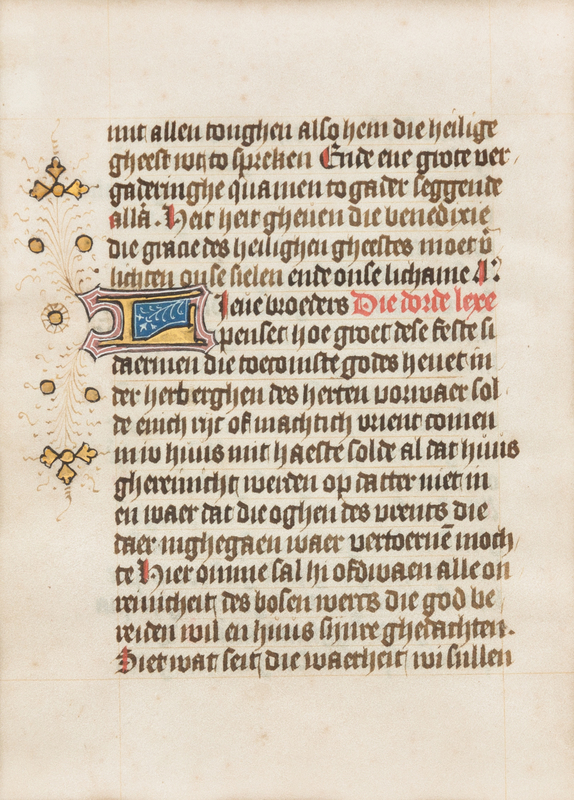 mit allen tonghen also hem die heilige
gheest wijt to spreken Ende ene grote ver
gaderinghe quamen to gader seggende
allā. Heit heit gheuen die benedixie
die gracie des heilighen gheestes moet v̄
lichten onse sielen ende onse lichame A.
Ieue broeders Die dorde lexe
penset hoe groet dese feste si
daermen die toecomste godes heuet in
der herberghen des herten vorwaer sol
de enich rijc of machtich vrient comen
in w huus mit haeste solde al dat huus
ghereinicht werden op datter niet in
en waer dat die oghen des vrents die
daer inghegaen waer vertoernē moch
te Hier omme sal hi ofdwaen alle on
reinicheit des bosen wercs die god be
reiden wil en huus sijnre ghedachten.
Siet wat seit die waerheit wi sullen